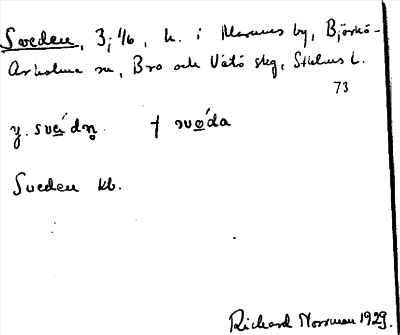 Sveden, 3; 4/6, h. i Marums by, Björkö-
Arholma sn, Bro och Vätö skg, Sthlms l.
73
y. své́dn̥. † svǿda
Sveden kb.
Richard Norrman 1929.